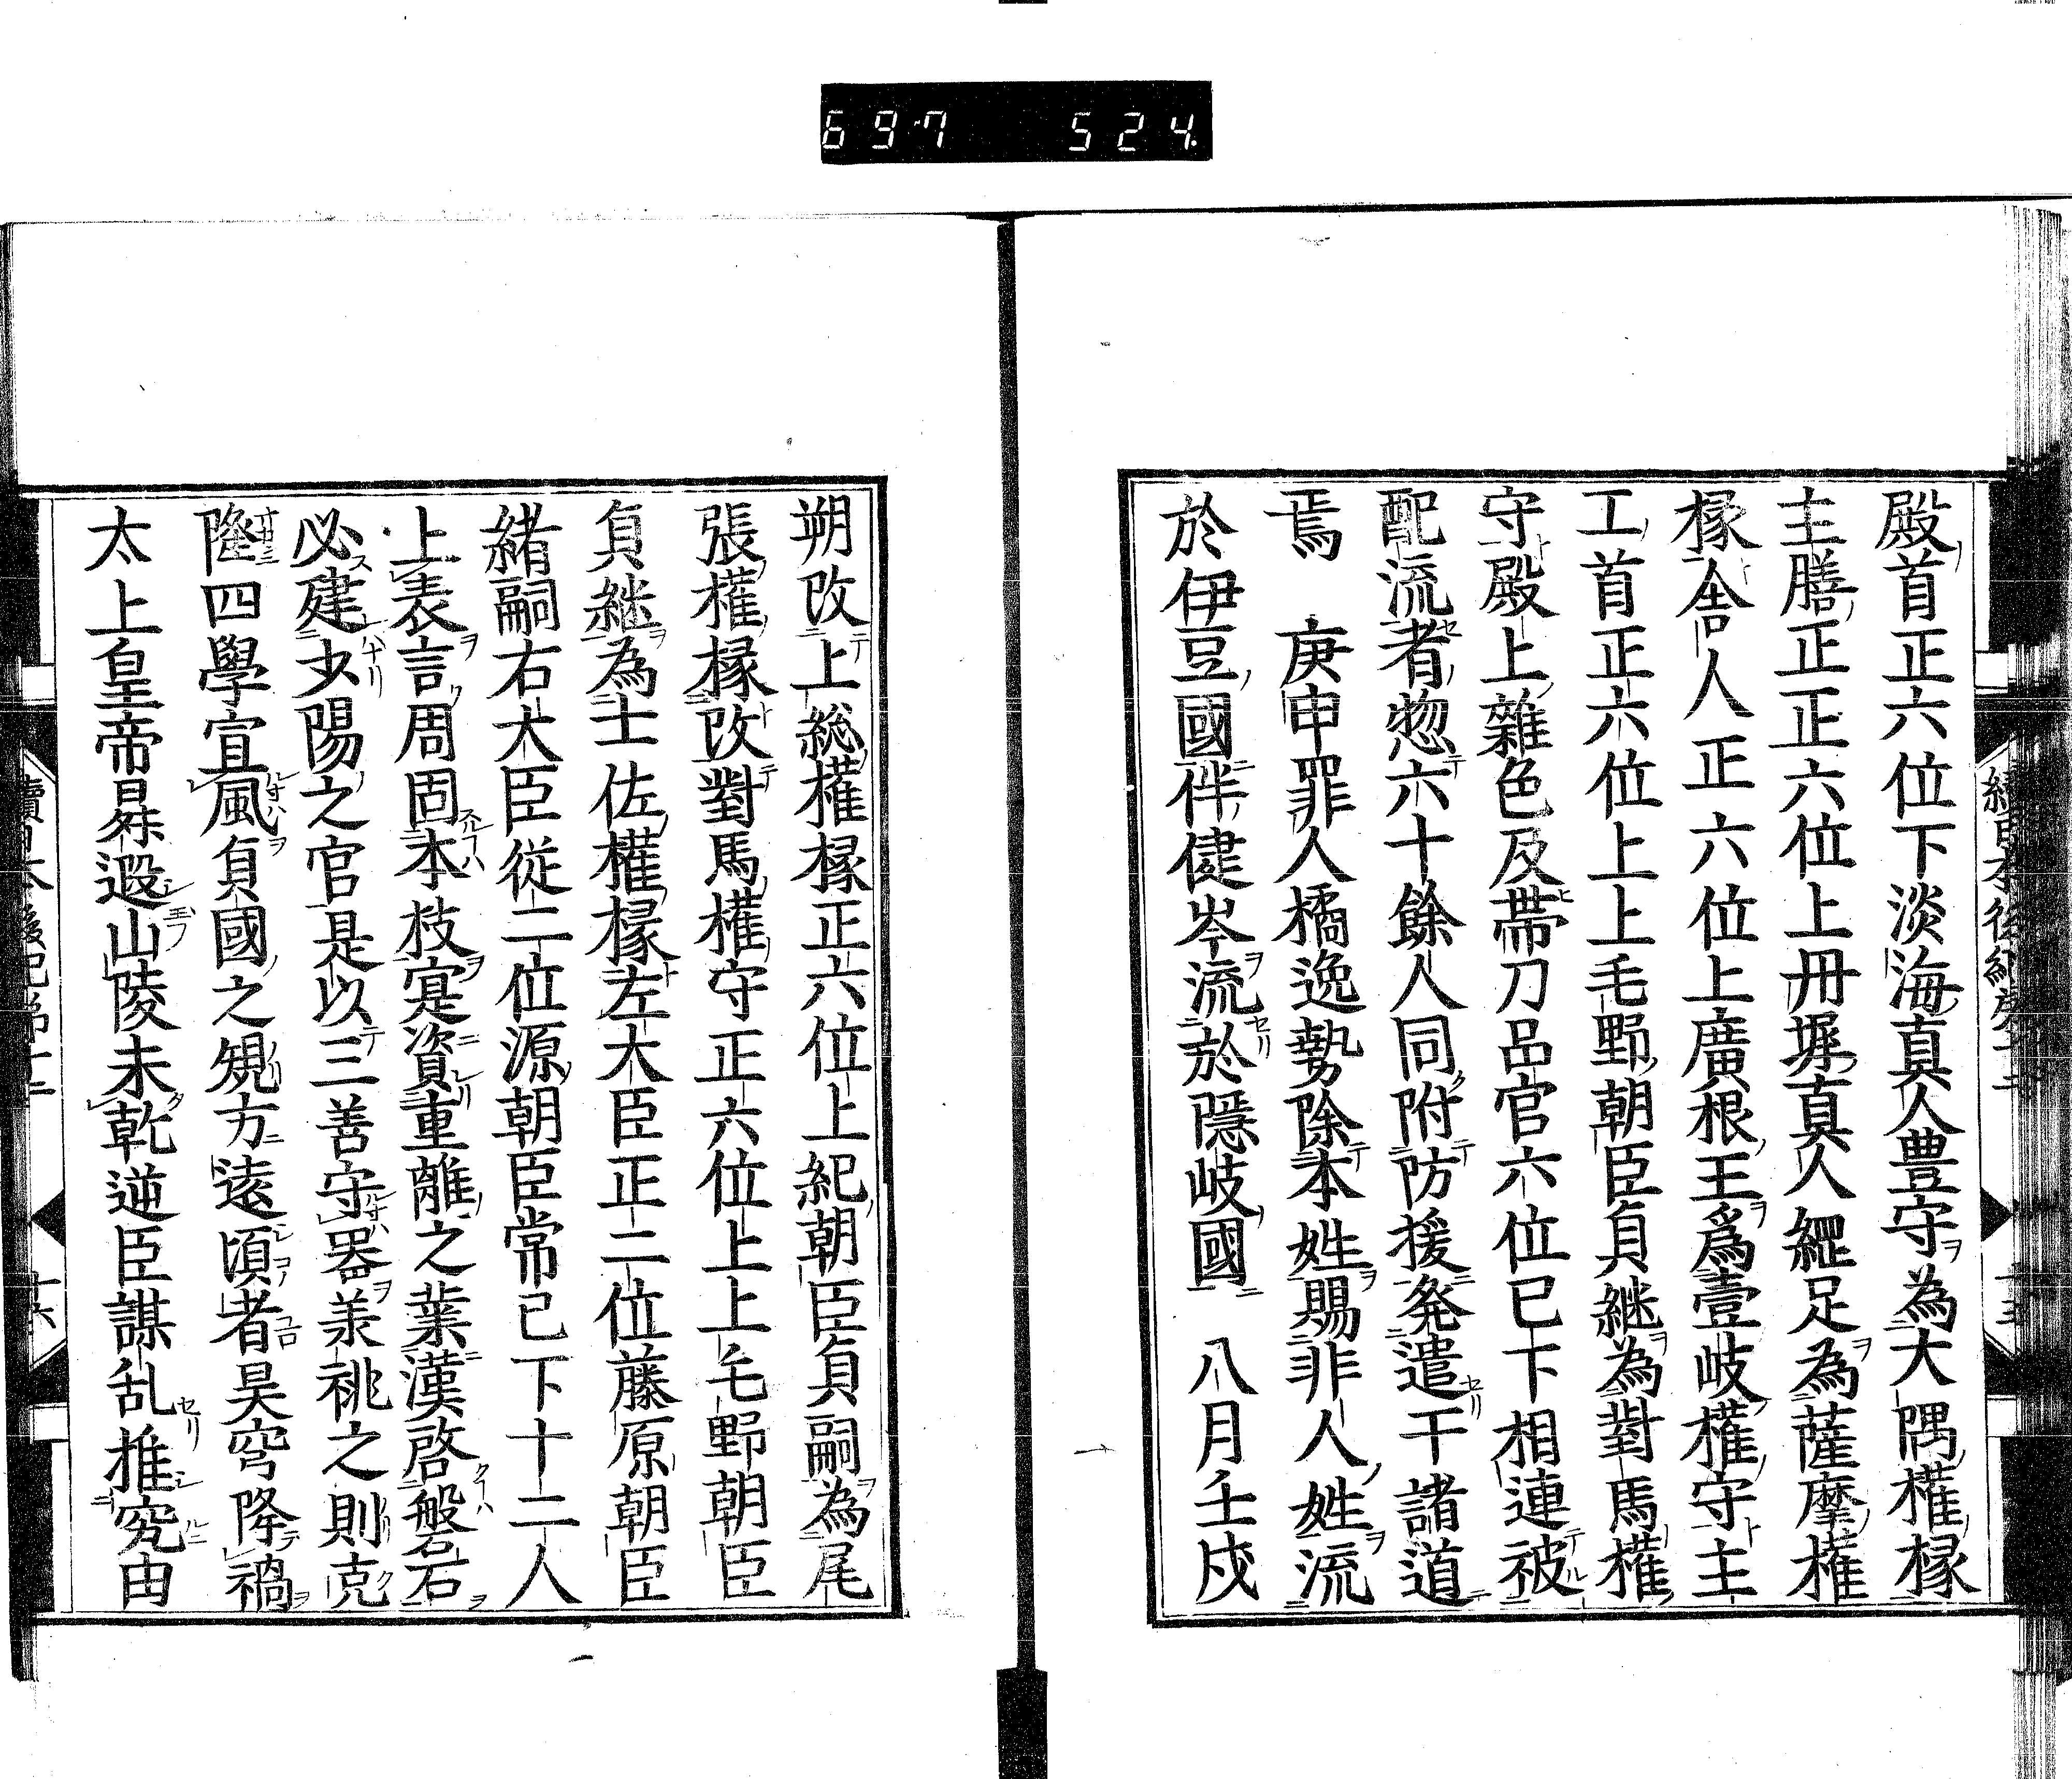 697 524.
殿首正六位下淡海真人豊守為大隅權掾
主膳正正六位上丹墀真人繩足為薩摩權
掾舎人正六位上廣根王爲壹岐權守主
工首正六位上上毛野朝臣貞継為對馬權
守殿上雜色及帶刀品官六位已下相連被
配流者惣六十餘人同附防援発遣干諸道
焉　庚申罪人橘逸勢除本姓賜非人姓流
於伊豆國伴健岑流於隠岐國　八月壬戌
朔改上総權掾正六位上紀朝臣貞嗣為尾
張權掾改對馬權守正六位上上毛野朝臣
貞継為土佐權掾左大臣正二位藤原朝臣
緒嗣右大臣従二位源朝臣常已下十二人
上表言周固本枝寔資重離之業漢啓磐石
必建少陽之官是以三善守器羕祧之則克
隆四學宣風貞國之䂓方逺頃者昊穹降禍
太上皇帝曻遐山陵未乾逆臣謀乱推究由